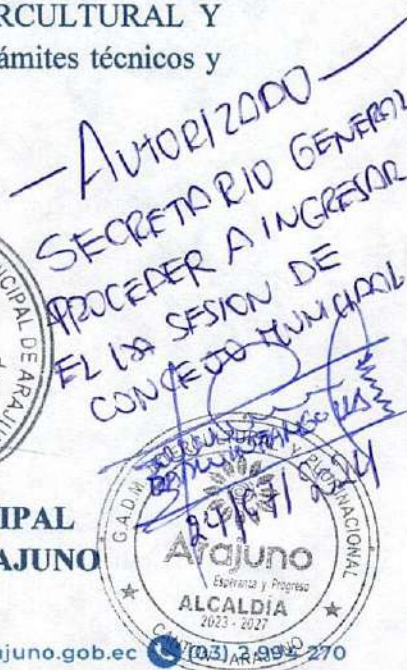 RCULTURAL Y
ámites técnicos y
— AUTORIZADO —
SECRETARIO GENERAL
PROCEDER A INGRESAR
EL
SESION DE
CONCEJO MUNICIPAL
ICIPAL DE ARAJUN
24/
IPAL
AJUNO
G.A.D.M
PLURINACIONAL
Arajuno
Esperanza y Progreso
ALCALDÍA
2023 - 2027
ARAJUNO
ajuno.gob.ec (03) 2 99 270